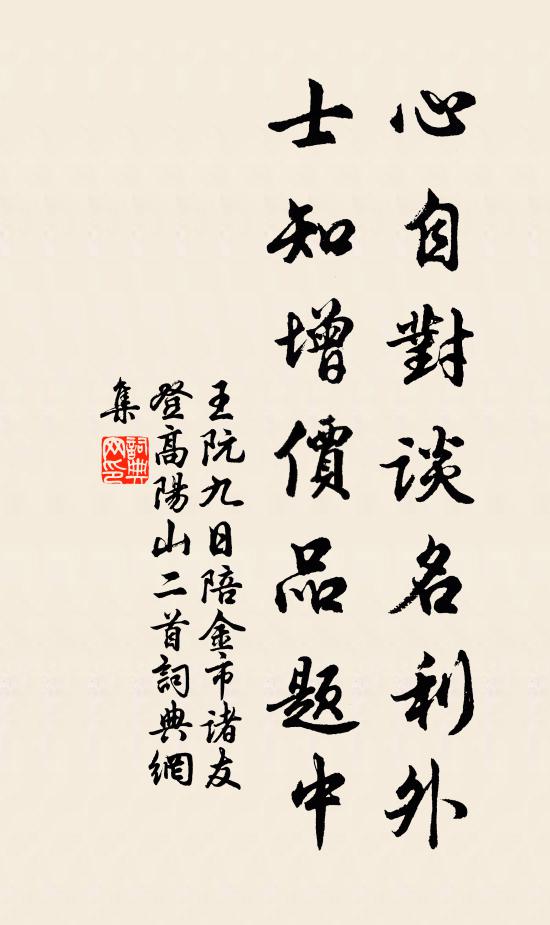 心自對談名利外
士知增價品題中
王阮九日陪金市诸友
登高陽山二首詞典網
集
詞典
网